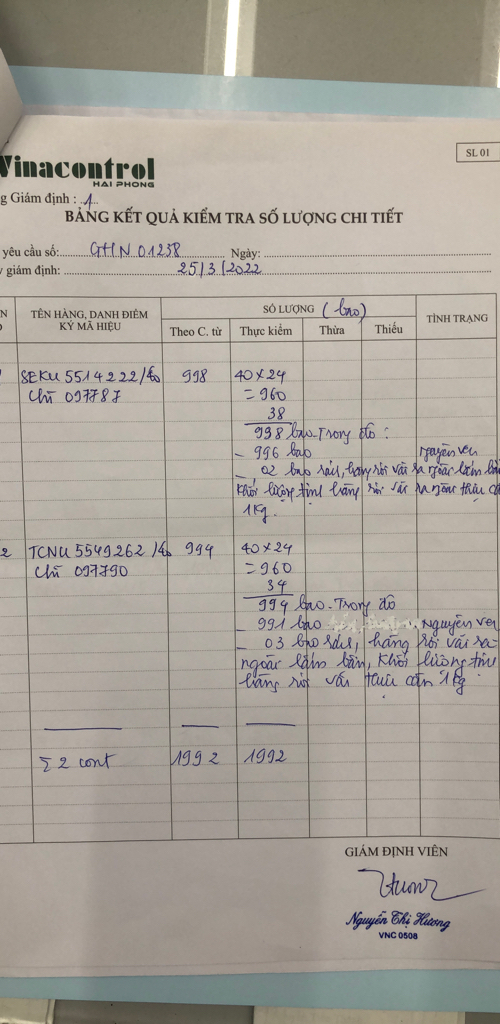 Vinacontrol
HAI PHONG
SL 01
g Giám định : 1
BẢNG KẾT QUẢ KIỂM TRA SỐ LƯỢNG CHI TIẾT
yêu cầu số: GHN 01238 Ngày:
giám định: 25/3/2022
TÊN HÀNG, DANH ĐIỂM KÝ MÃ HIỆU
SỐ LƯỢNG (bao)
TÌNH TRẠNG
Theo C. từ Thực kiểm Thừa Thiếu
SEKU 5514222/40 998 40 x 24
Chì 097787 = 960
38
998 bao. Trong đó :
- 996 bao nguyên vẹn
- 02 bao rách, hàng rơi vãi ra ngoài lấm bẩn
Khối lượng tịnh hàng rơi vãi ra ngoài thực cân
1kg.
2 TCNU 5549262/40 994 40 x 24
Chì 097790 = 960
34
994 bao. Trong đó
- 991 bao Nguyên vẹn
- 03 bao rách, hàng rơi vãi ra
ngoài lấm bẩn, Khối lượng tịnh
hàng rơi vãi thực cân 1kg
Σ 2 cont 1992 1992
GIÁM ĐỊNH VIÊN
Nguyễn Thị Hương
VNC 0508